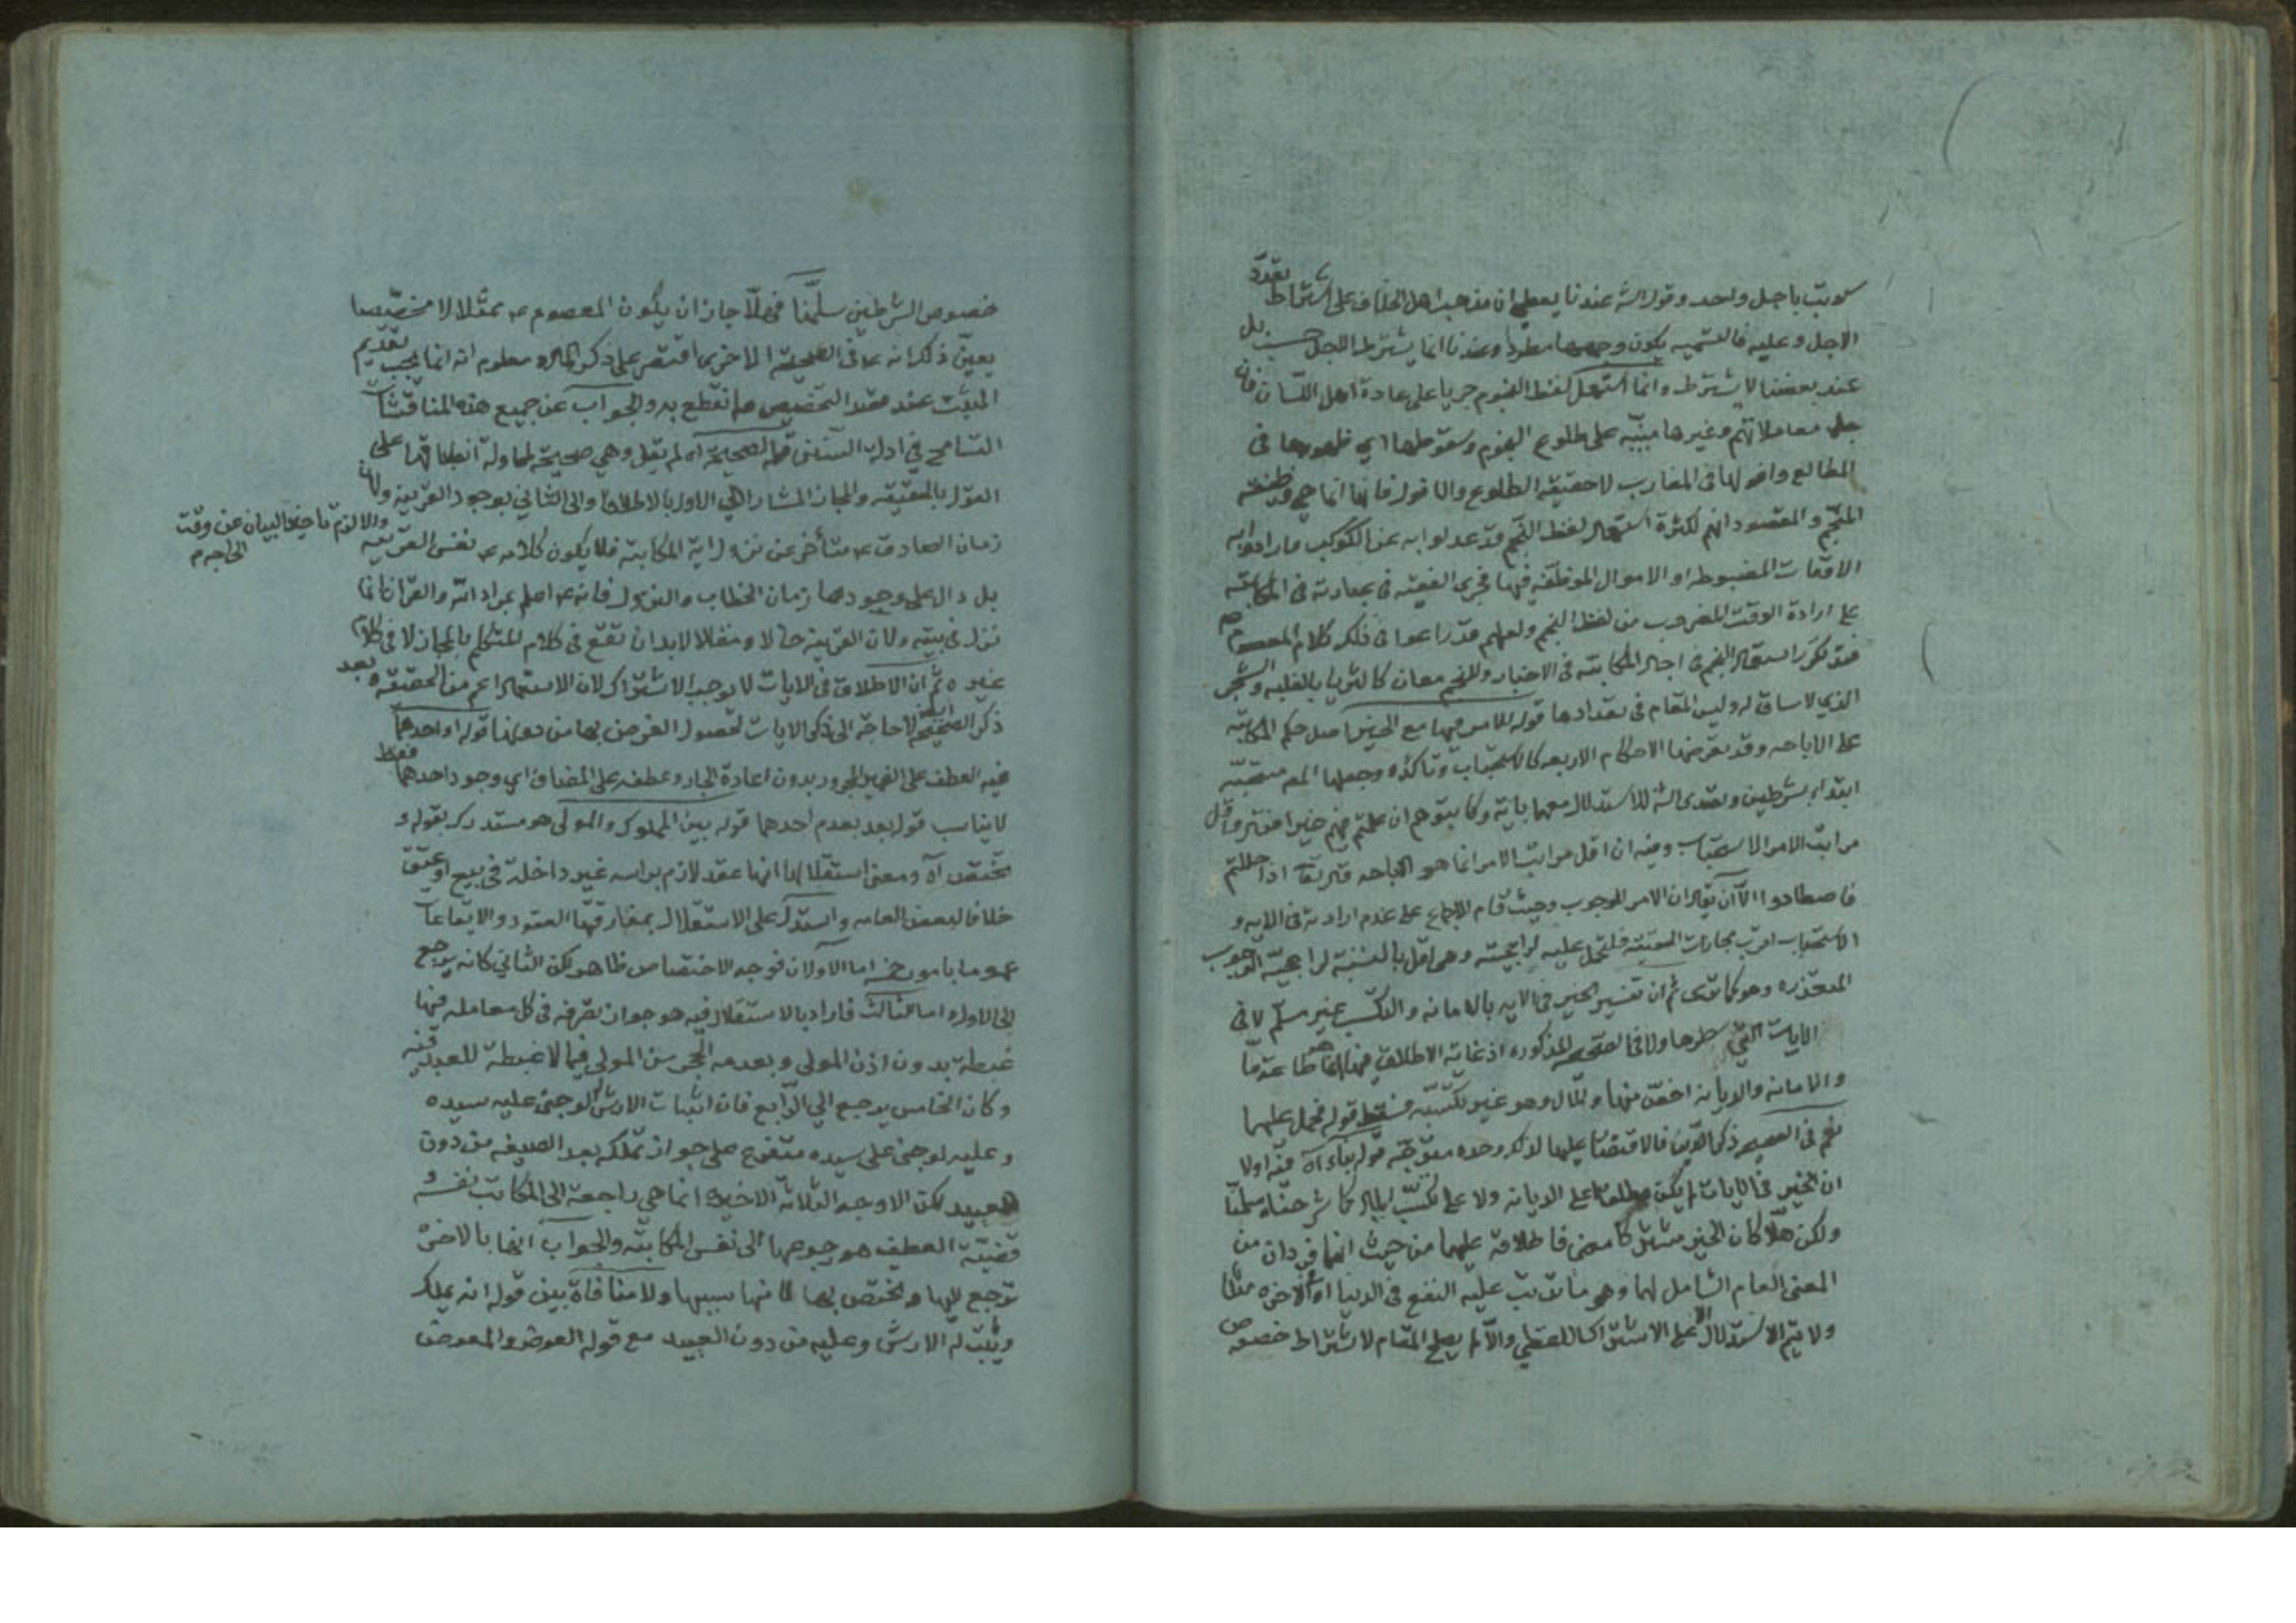 كلا يثبت باجل واحد وقول الش عندنا يعطي ان مذهب اهل الخلاف على اشتراط تعدد
الاجل وعليه فالتسميه يكون وجهها مطردا وعندنا انما يشترط الاجل بل
عند بعضنا لا يشترط وانما استعمل لفظ النجوم جريا على عادة اهل اللسان فان
جل معاملاتهم وغيرها مبنيه على طلوع النجوم وسقوطها اي ظهورها في
المطالع وافولها في المغارب لا حقيقة الطلوع والافول فانها انما هي وظيفة
المنجم والمقصود انهم لكثرة استعمال لفظ النجم قد عدلوا به عن الكوكب وارادوا به
الاوقات المضبوطه او الاموال الموظفه فيها فجرى الفقيه في عبارته في المكاتبه
على ارادة الوقت المضروب من لفظ النجم ولعلهم قد راعوا في ذلك كلام المعصوم
فقد تكرر استعمال النجم في اجال المكاتبه في الاخبار وللنجم معان كالثريا بالغلبه والشجر
الذي لا ساق له وليس المقام في تعدادها قوله للامر بها مع الخير اصل حكم المكاتبه
على الاباحه وقد تعرضها الاحكام الاربعه كالاستحباب وتاكده وجعلها المص مستحبه
ابتداء بشرطين وتصدى الش للاستدلال معهما باية وكاتبوهم ان علمتم فيهم خيرا واقل
مراتب الامر الاستحباب وفيه ان اقل مراتب الامر انما هو الاباحه قوله تعا اذا حللتم
فاصطادوا الا ان يقال ان الامر للوجوب وحيث قام الاجماع على عدم ارادته في الايه و
الاستحباب اقرب مجازات الحقيقه فلتحمل عليه لراجحيته وهي اقل بالنسبة لراجحية الوجوب
المتعذره وهو كما ترى ثم ان تفسير الخير في الايه بالامانه والتكسب غير مسلم لا في
الايات التي سطرها ولا في الصحيحه المذكوره اذ غاية الاطلاق فيها
والامانه والديانه اخص منها والمال وهو غير تكسبه فسقط قوله فحمل عليهما
نعم في الصحيح ذكر الدين فالاقتصار عليهما لا لكل وحده متوجه قوله بناء اه فيه اولا
ان الخير في الايات لم يكن مطلقا على الديانه ولا على تكسب المال كما شرحناه سلمنا
ولكن هلا كان الخير مشتركا معنى فاطلاقه عليهما من حيث انهما فردان من
المعنى العام الشامل لهما وهو ما ترتب عليه النفع في الدنيا او الاخره مثلا
ولا يتم الاستدلال الا على الاشتراك اللفظي والا لم يصلح المقام لاشتراط خصوص
خصوص الشرطين سلمنا فهلا جاز ان يكون المعصوم ع ممثلا لا مخصصا
يعين ذلك انه ع في الصحيحة الاخرى اقتصر على ذكر المال ومعلوم انه انما يجب تقديم
المثبت عند قصد التخصيص ولم نقطع به والجواب عن جميع هذه المناقشات
التسامح في ادلة السنن قوله الصحيحة اه لم يقل وهي صحيحة لمحاولة انطباقها على
القول بالحقيقه والمجاز المشار الى الاول بالاطلاق والى الثاني بوجود القرينه ولان
زمان الصادق ع متأخر عن نزول اية المكاتبة فلا يكون كلامه ع نفس القرينه
والا لزم تاخير البيان عن وقت
الحاجه م
بل دال على وجودها زمان الخطاب والنزول فانه ع اعلم بمراد الله والقران انما
نزل في بيته ولان القرينه حالا ومقالا لا بد ان تقع في كلام المتكلم بالمجاز لا في كلام
غيره ثم ان الاطلاق في الايات لا يوجب الاشتراك لان الاستعمال اعم من الحقيقه وبعد
ذكر الصحيحة لا حاجة الى ذكر الايات لحصول الغرض بها من دونها قوله او احدهما
فيه العطف على الضمير المجرور بدون اعادة الجار وعطفه على المضاف اي وجود احدهما فقط
لا يناسب قوله بعد بعدم احدهما قوله بين المملوك والمولى هو مستدرك بقوله و
تختص اه ومعنى استقلالها انها عقد لازم براسه غير داخلة في بيع او عتق
خلافا لبعض العامه واستدل على الاستقلال بمفارقتها العقود والايقاعات
عموما بامور خمسة اما الاولان فوجه الاختصاص ظاهر لكن الثاني كانه يرجع
الى الاول واما الثالث فاراد بالاستقلال فيه هو جواز تصرفه في كل معاملة فيها
غبطة بدون اذن المولى وبعدمه الحجر من المولى فيما لا غبطة للعبد فيه
وكان الخامس يرجع الى الرابع فان اثبات الارش له لو جنى عليه سيده
وعليه لو جنى على سيده متفرع على جواز تملكه بعد الصيغه من دون
العبيد لكن الاوجه الثلاثة الاخيره انما هي راجعة الى المكاتب نفسه و
قضية العطف هو رجوعها الى نفس المكاتبة والجواب انها بالاخره
ترجع اليها وتختص بها لانها سببها ولا منافاة بين قوله انه يملك
ويثبت له الارش وعليه من دون العبيد مع قوله العوض والمعوض